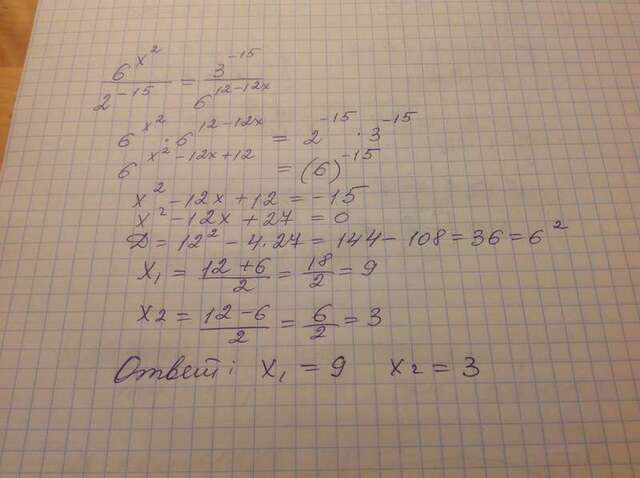 6^{x^2} / 2^{-15} = 3^{-15} / 6^{12-12x}
6^{x^2} · 6^{12-12x} = 2^{-15} · 3^{-15}
6^{x^2-12x+12} = (6)^{-15}
x^2 - 12x + 12 = -15
x^2 - 12x + 27 = 0
D = 12^2 - 4·27 = 144 - 108 = 36 = 6^2
x_1 = (12+6)/2 = 18/2 = 9
x2 = (12-6)/2 = 6/2 = 3
Ответ: x_1 = 9 x2 = 3